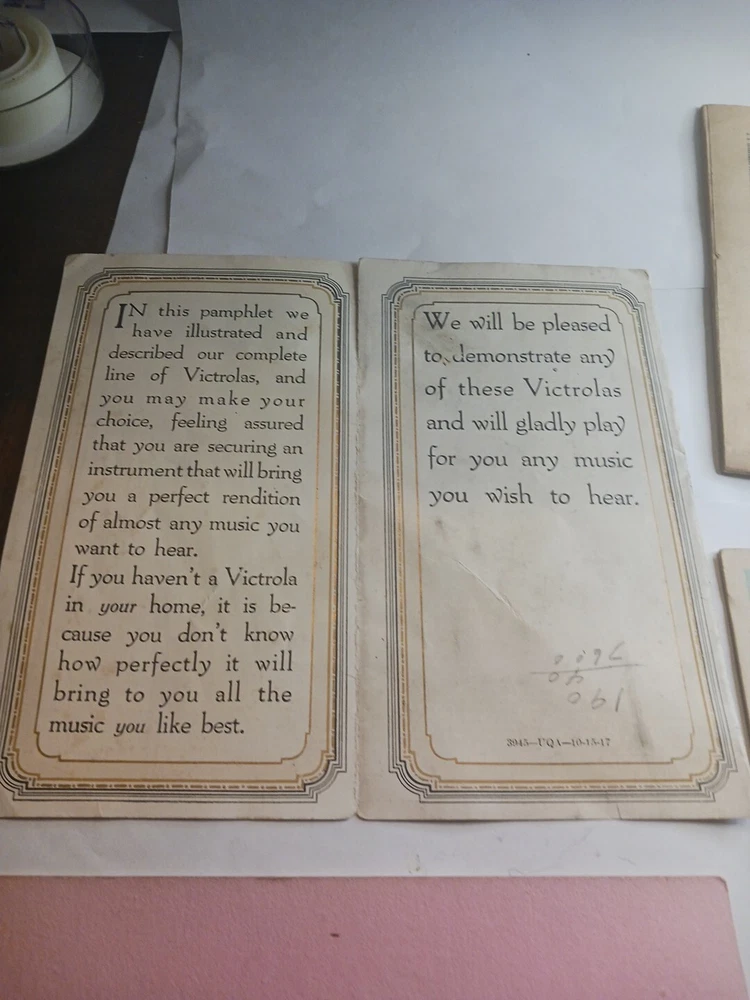 IN this pamphlet we
have illustrated and
described our complete
line of Victrolas, and
you may make your
choice, feeling assured
that you are securing an
instrument that will bring
you a perfect rendition
of almost any music you
want to hear.
If you haven't a Victrola
in your home, it is be-
cause you don't know
how perfectly it will
bring to you all the
music you like best.
We will be pleased
to demonstrate any
of these Victrolas
and will gladly play
for you any music
you wish to hear.
3945—UQA—10-15-17